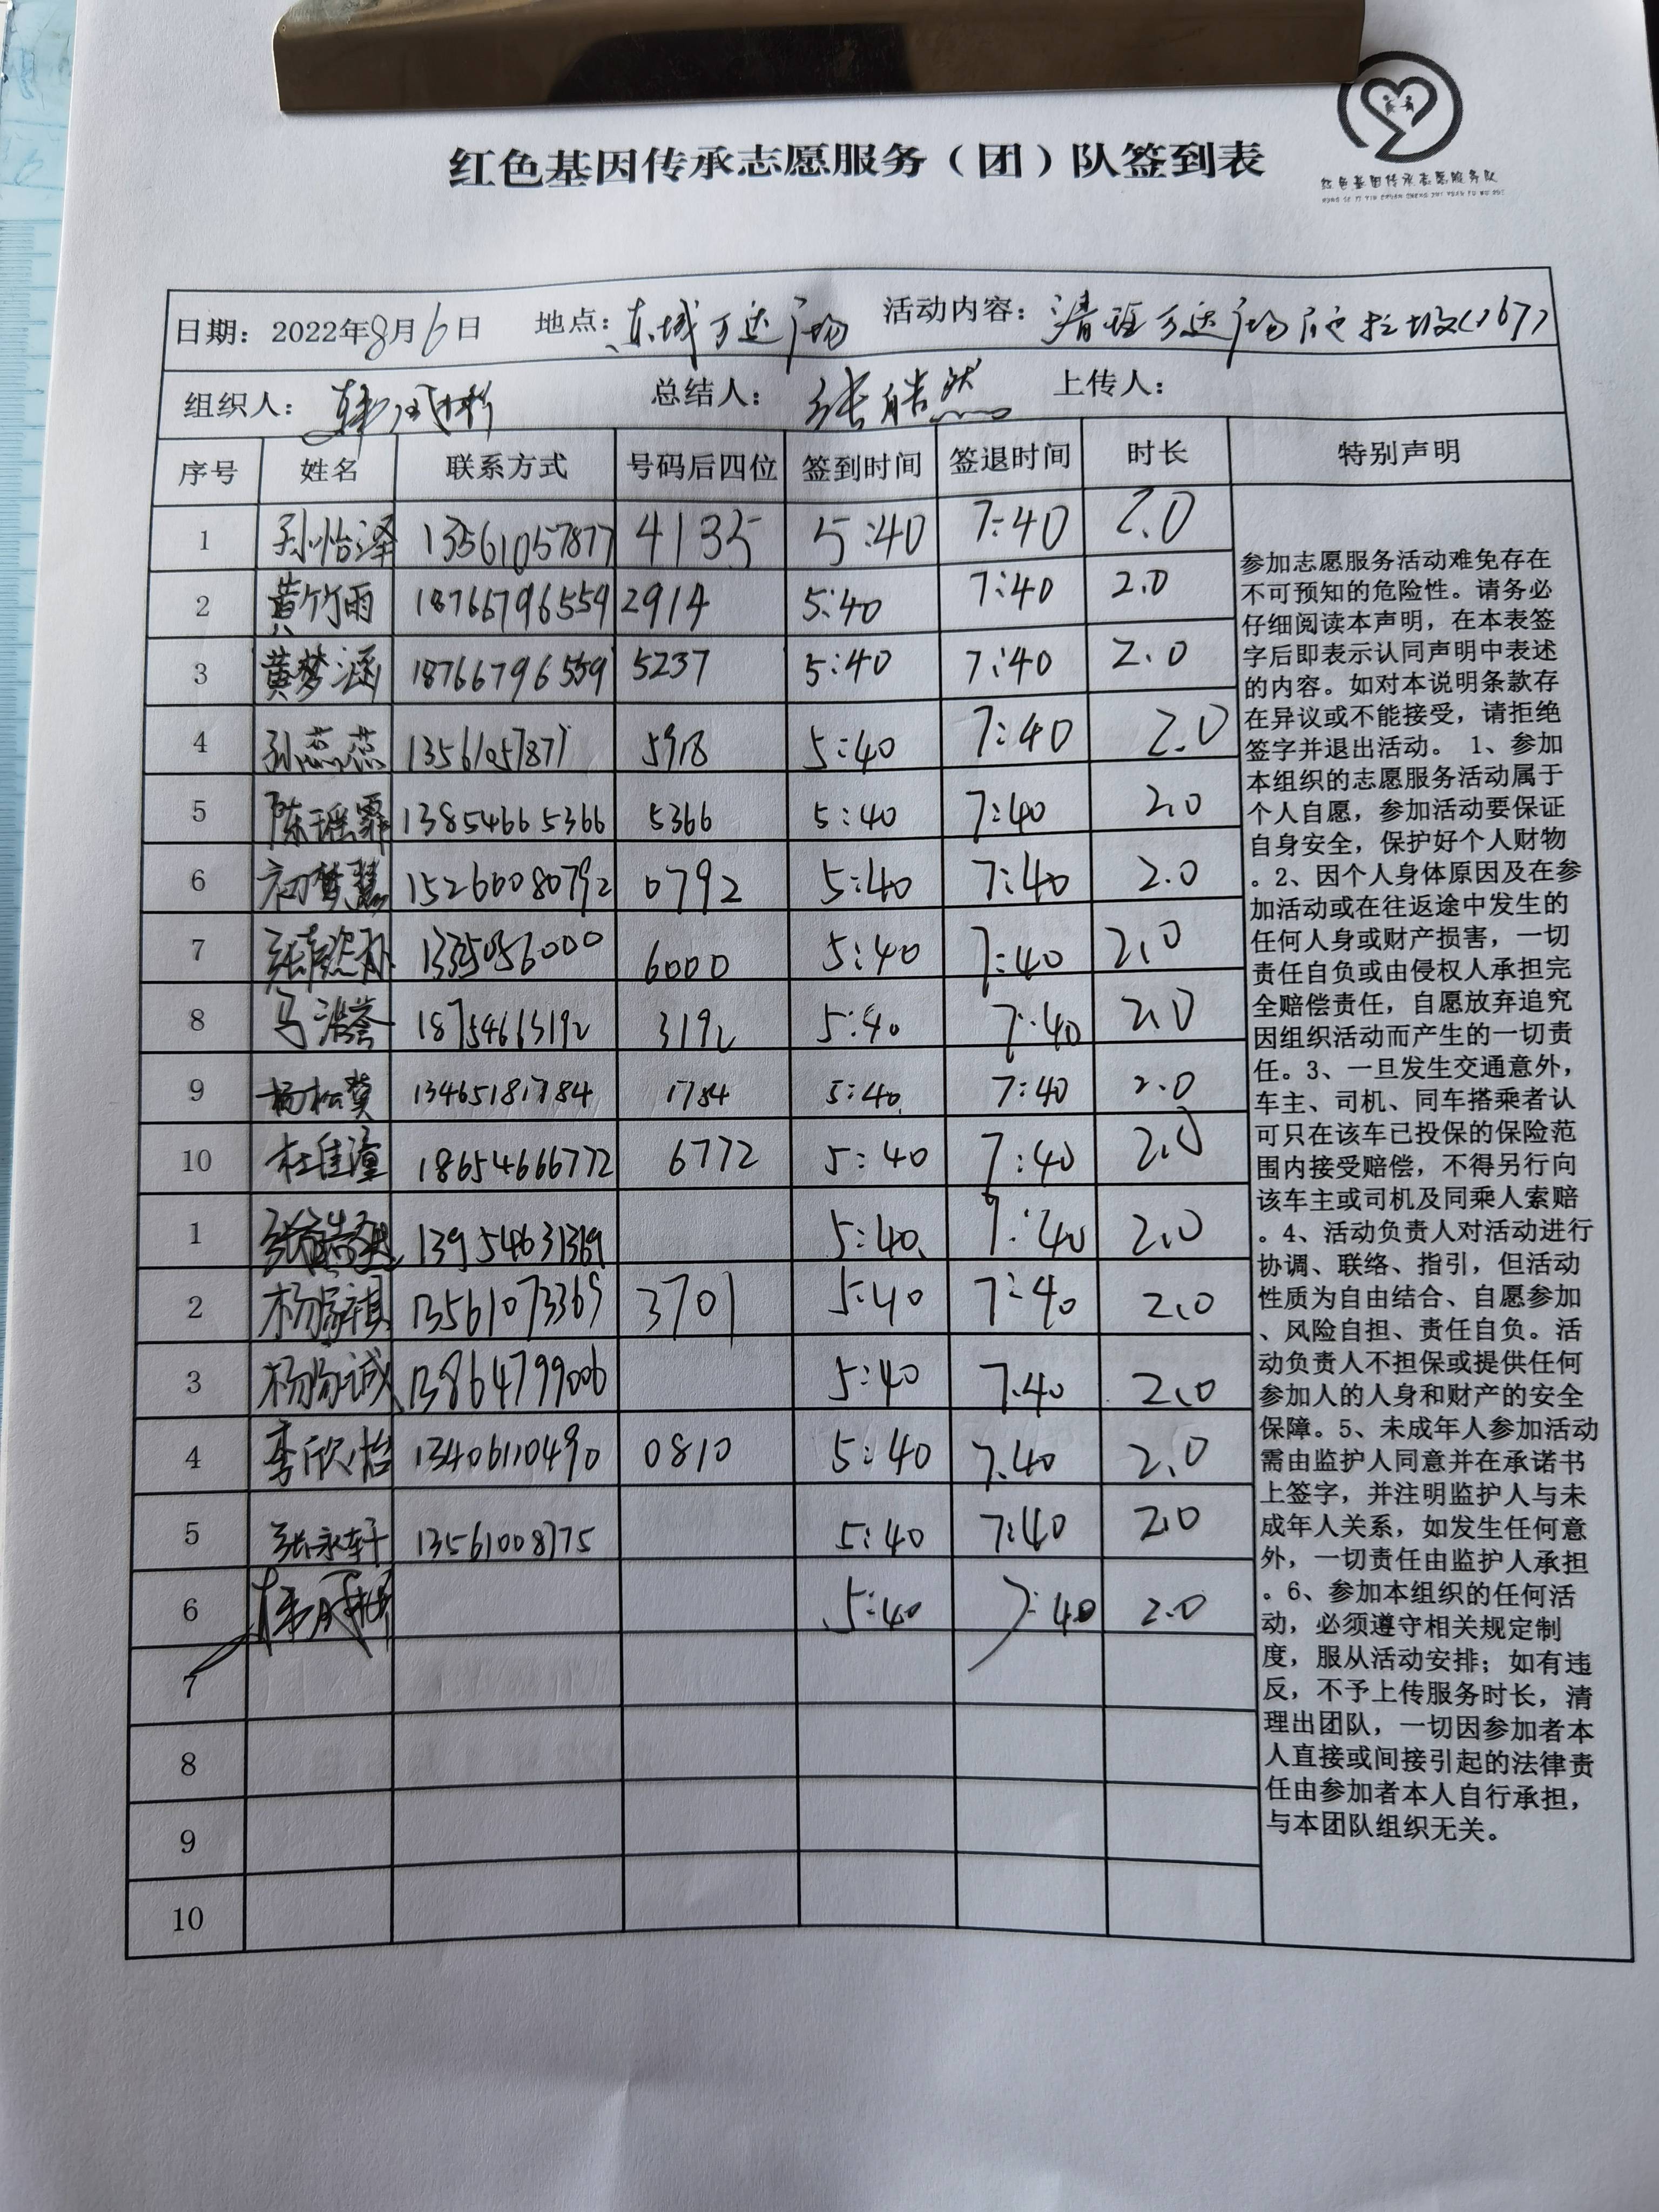 红色基因传承志愿服务（团）队签到表
红色基因传承志愿服务队
HONG SE JI YIN CHUAN CHENG ZHI YUAN FU WU DUI
日期：2022年8月6日 地点：东城万达广场 活动内容：清理万达广场 垃圾
组织人： 总结人：张皓然 上传人：
序号 姓名 联系方式 号码后四位 签到时间 签退时间 时长 特别声明
1 孙怡泽 13561057877 4135 5:40 7:40 2.0
2 黄竹雨 18766796559 2914 5:40 7:40 2.0
3 黄梦涵 18766796559 5237 5:40 7:40 2.0
4 孙蕊蕊 5918 5:40 7:40 2.0
5 陈瑶霏 13854665366 5366 5:40 7:40 2.0
6 15266080792 0792 5:40 7:40 2.0
7 6000 5:40 7:40 2.0
8 马浩誉 18754663192 3192 5:40 7:40 2.0
9 13465181784 1784 5:40 7:40 2.0
10 杜佳潼 18654666772 6772 5:40 7:40 2.0
1 张皓然 13954631369 5:40 7:40 2.0
2 杨家祺 13561073369 3701 5:40 7:40 2.0
3 13864799006 5:40 7.40 2.0
4 李欣怡 13406110490 0810 5:40 7.40 2.0
5 张永轩 13561008775 5:40 7:40 2.0
6 5:40 7:40 2.0
7
8
9
10
参加志愿服务活动难免存在
不可预知的危险性。请务必
仔细阅读本声明，在本表签
字后即表示认同声明中表述
的内容。如对本说明条款存
在异议或不能接受，请拒绝
签字并退出活动。 1、参加
本组织的志愿服务活动属于
个人自愿，参加活动要保证
自身安全，保护好个人财物
。2、因个人身体原因及在参
加活动或在往返途中发生的
任何人身或财产损害，一切
责任自负或由侵权人承担完
全赔偿责任，自愿放弃追究
因组织活动而产生的一切责
任。3、一旦发生交通意外，
车主、司机、同车搭乘者认
可只在该车已投保的保险范
围内接受赔偿，不得另行向
该车主或司机及同乘人索赔
。4、活动负责人对活动进行
协调、联络、指引，但活动
性质为自由结合、自愿参加
、风险自担、责任自负。活
动负责人不担保或提供任何
参加人的人身和财产的安全
保障。5、未成年人参加活动
需由监护人同意并在承诺书
上签字，并注明监护人与未
成年人关系，如发生任何意
外，一切责任由监护人承担
。6、参加本组织的任何活
动，必须遵守相关规定制
度，服从活动安排；如有违
反，不予上传服务时长，清
理出团队，一切因参加者本
人直接或间接引起的法律责
任由参加者本人自行承担，
与本团队组织无关。